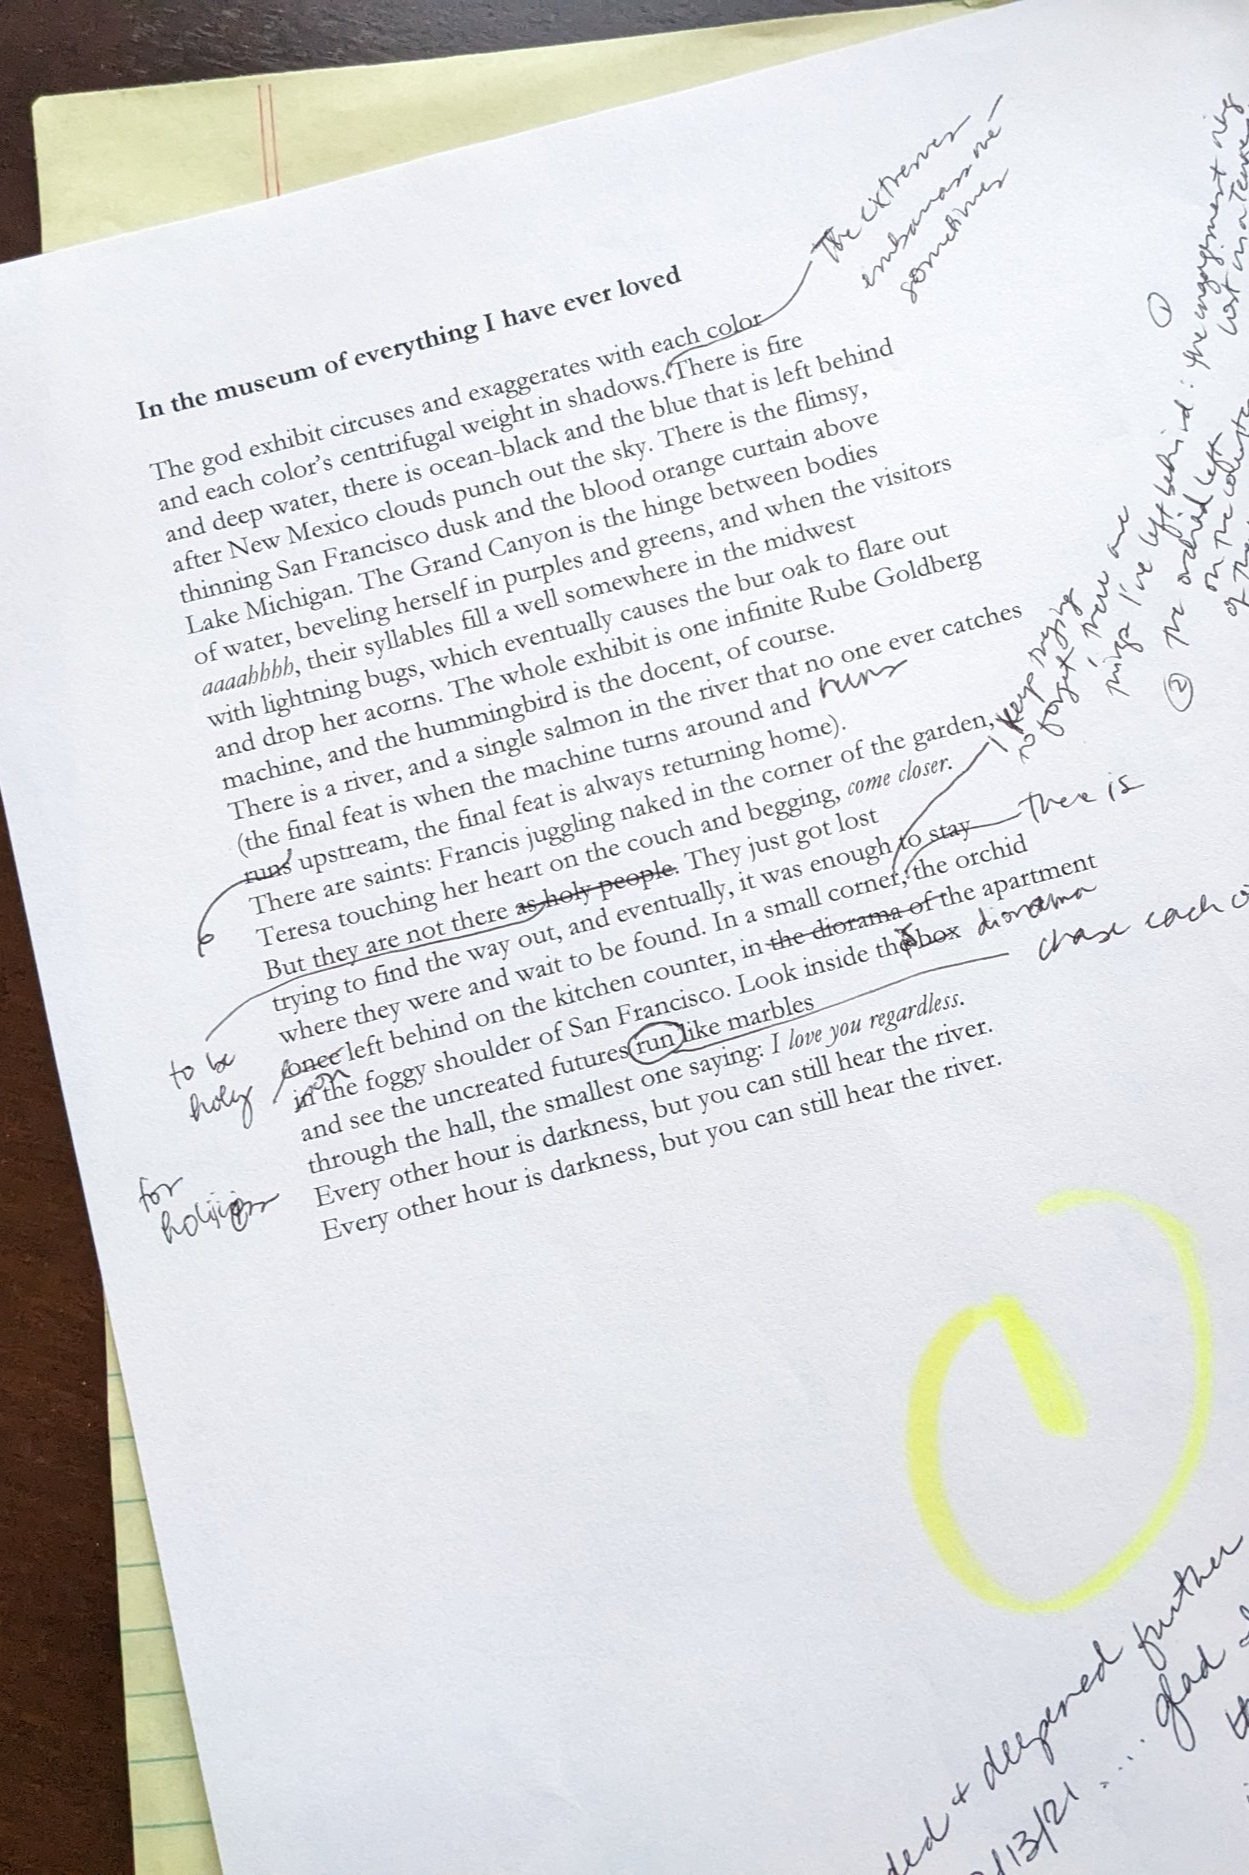 In the museum of everything I have ever loved
The god exhibit circuses and exaggerates with each color
and each color's centrifugal weight in shadows. There is fire
and deep water, there is ocean-black and the blue that is left behind
after New Mexico clouds punch out the sky. There is the flimsy,
thinning San Francisco dusk and the blood orange curtain above
Lake Michigan. The Grand Canyon is the hinge between bodies
of water, beveling herself in purples and greens, and when the visitors
aaaahhhh, their syllables fill a well somewhere in the midwest
with lightning bugs, which eventually causes the bur oak to flare out
and drop her acorns. The whole exhibit is one infinite Rube Goldberg
machine, and the hummingbird is the docent, of course.
There is a river, and a single salmon in the river that no one ever catches
(the final feat is when the machine turns around and runs
runs upstream, the final feat is always returning home).
There are saints: Francis juggling naked in the corner of the garden,
Teresa touching her heart on the couch and begging, come closer.
But they are not there as holy people. They just got lost
trying to find the way out, and eventually, it was enough to stay
where they were and wait to be found. In a small corner, the orchid
once left behind on the kitchen counter, in the diorama of the apartment
in the foggy shoulder of San Francisco. Look inside the box diorama
and see the uncreated futures run like marbles
through the hall, the smallest one saying: I love you regardless.
Every other hour is darkness, but you can still hear the river.
Every other hour is darkness, but you can still hear the river.
The extremes
embarrass me
sometimes
I keep trying
to forget
there are
things I've left behind:
①
the engagement ring
lost in a
②
The orchid left
on the
of the
There is
chase each
to be
holy
on
for
& deepened further
13/21 .... glad